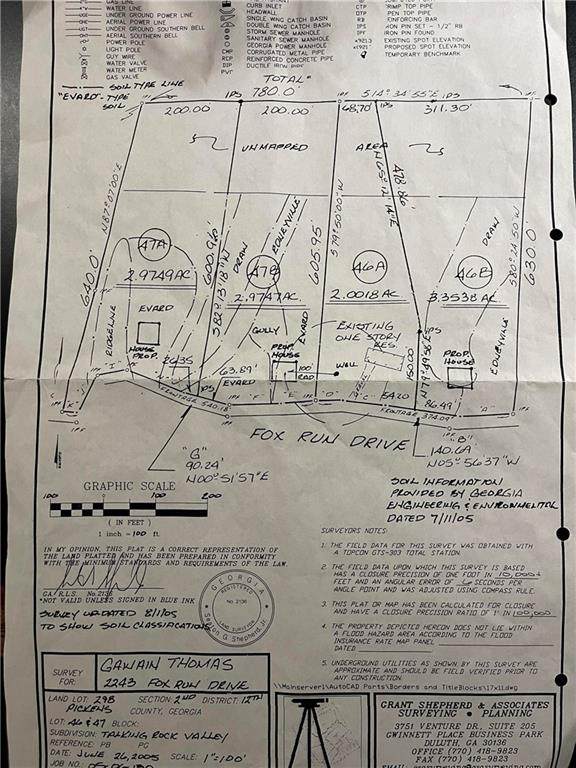 GAS LINE
WATER LINE
UNDER GROUND POWER LINE
AERIAL POWER LINE
UNDER GROUND SOUTHERN BELL
AERIAL SOUTHERN BELL
POWER POLE
LIGHT POLE
GUY WIRE
WATER VALVE
WATER METER
GAS VALVE
CURB INLET
HEADWALL
SINGLE WING CATCH BASIN
DOUBLE WING CATCH BASIN
STORM SEWER MANHOLE
SANITARY SEWER MANHOLE
GEORGIA POWER MANHOLE
CMP CORRUGATED METAL PIPE
RCP REINFORCED CONCRETE PIPE
DIP DUCTILE IRON PIPE
PVC
CTP CRIMP TOP PIPE
OTP OPEN TOP PIPE
RB REINFORCING BAR
IPS IRON PIN SET - 1/2" RB
IPF IRON PIN FOUND
EXISTING SPOT ELEVATION
PROPOSED SPOT ELEVATION
TEMPORARY BENCHMARK
SOIL TYPE LINE
"EVARD"- TYPE SOIL
TOTAL=
780.0'
S14°34'55"E
IPS
200.00'
IPS
200.00'
IPF
68.70'
IPS
311.30'
IPF
UNMAPPED
AREA
N87°07'00"E
640.0'
600.96'
S82°13'18"W
605.95
S79°50'00"W
478.86'
N05°12'14"E
S80°24'50"W
630.0'
DRAW
EDNEYVILLE
DRAW
EDNEYVILLE
47A
2.9749 AC.
47B
2.9747 AC.
46A
2.0018 AC.
46B
3.3538 AC.
RIDGELINE
EVARD
HOUSE
PROP.
GULLY
EVARD
PROP.
HOUSE
100'
RAD
EXISTING
ONE STORY
RES.
WELL
150.00'
IPS
N77°49'58"E
PROP.
HOUSE
63.89'
EVARD
86.49'
IPS
FRONTAGE 540.18'
FRONTAGE 374.09'
"F"
"E"
"D"
"C"
"A"
IPF
FOX RUN DRIVE
"G"
90.24'
N00°51'57"E
"B"
140.69'
N05°56'37"W
SOIL INFORMATION
PROVIDED BY GEORGIA
ENGINEERING & ENVIRONMENTAL
DATED 7/11/05
GRAPHIC SCALE
100 0 100 200
( IN FEET )
1 inch = 100 ft.
IN MY OPINION, THIS PLAT IS A CORRECT REPRESENTATION OF
THE LAND PLATTED AND HAS BEEN PREPARED IN CONFORMITY
WITH THE MINIMUM STANDARDS AND REQUIREMENTS OF THE LAW.
GA/R.L.S. No. 2136
*NOT VALID UNLESS SIGNED IN BLUE INK
SURVEY UPDATED 8/1/05
TO SHOW SOIL CLASSIFICATIONS
GEORGIA
REGISTERED
No. 2136
LAND SURVEYOR
Grant Shepherd, Jr.
SURVEYORS NOTES:
1. THE FIELD DATA FOR THIS SURVEY WAS OBTAINED WITH
A TOPCON GTS-303 TOTAL STATION.
2. THE FIELD DATA UPON WHICH THIS SURVEY IS BASED
HAS A CLOSURE PRECISION OF ONE FOOT IN 10,000+
FEET AND AN ANGULAR ERROR OF SECONDS PER
ANGLE POINT AND WAS ADJUSTED USING COMPASS RULE.
3. THIS PLAT OR MAP HAS BEEN CALCULATED FOR CLOSURE
AND HAVE A CLOSURE PRECISION RATIO OF 1' IN 100,000
4. THE PROPERTY DEPICTED HEREON DOES NOT LIE WITHIN
A FLOOD HAZARD AREA ACCORDING TO THE FLOOD
INSURANCE RATE MAP PANEL
DATED
5. UNDERGROUND UTILITIES AS SHOWN BY THIS SURVEY ARE
APPROXIMATE AND SHOULD BE FIELD VERIFIED PRIOR TO
ANY CONSTRUCTION.
\\Mainserver1\AutoCAD Parts\Borders and TitleBlocks\17x11.dwg
SURVEY
FOR:
GAWAIN THOMAS
2243 FOX RUN DRIVE
LAND LOT: 298 SECTION: 2ND DISTRICT: 12TH
PICKENS COUNTY, GEORGIA
LOT: 46 & 47 BLOCK:
SUBDIVISION: TALKING ROCK VALLEY
REFERENCE: PB PG
DATE: JUNE 26, 2005 SCALE: 1"=100'
JOB NO.
GRANT SHEPHERD & ASSOCIATES
SURVEYING • PLANNING
3751 VENTURE DR., SUITE 205
GWINNETT PLACE BUSINESS PARK
DULUTH, GA 30136
OFFICE (770) 418-9823
FAX (770) 418-9823